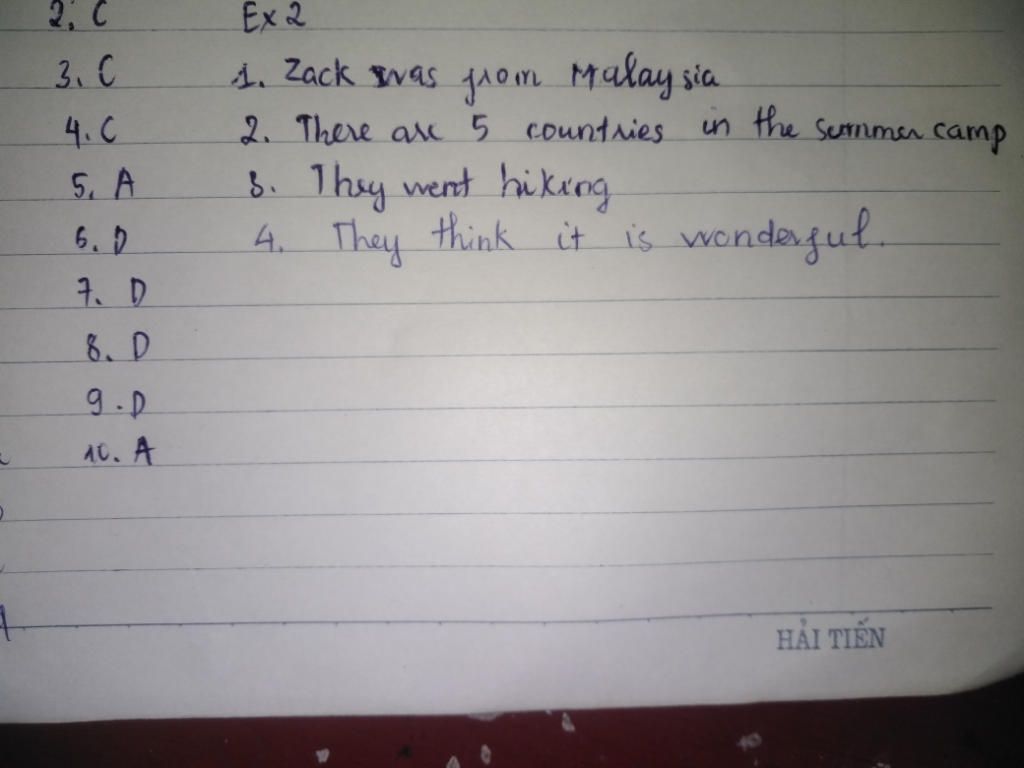 2. C Ex 2
3. C 1. Zack was from Malaysia
4. C 2. There are 5 countries in the summer camp
5. A 3. They went hiking
6. D 4. They think it is wonderful.
7. D
8. D
9. D
10. A
HẢI TIẾN